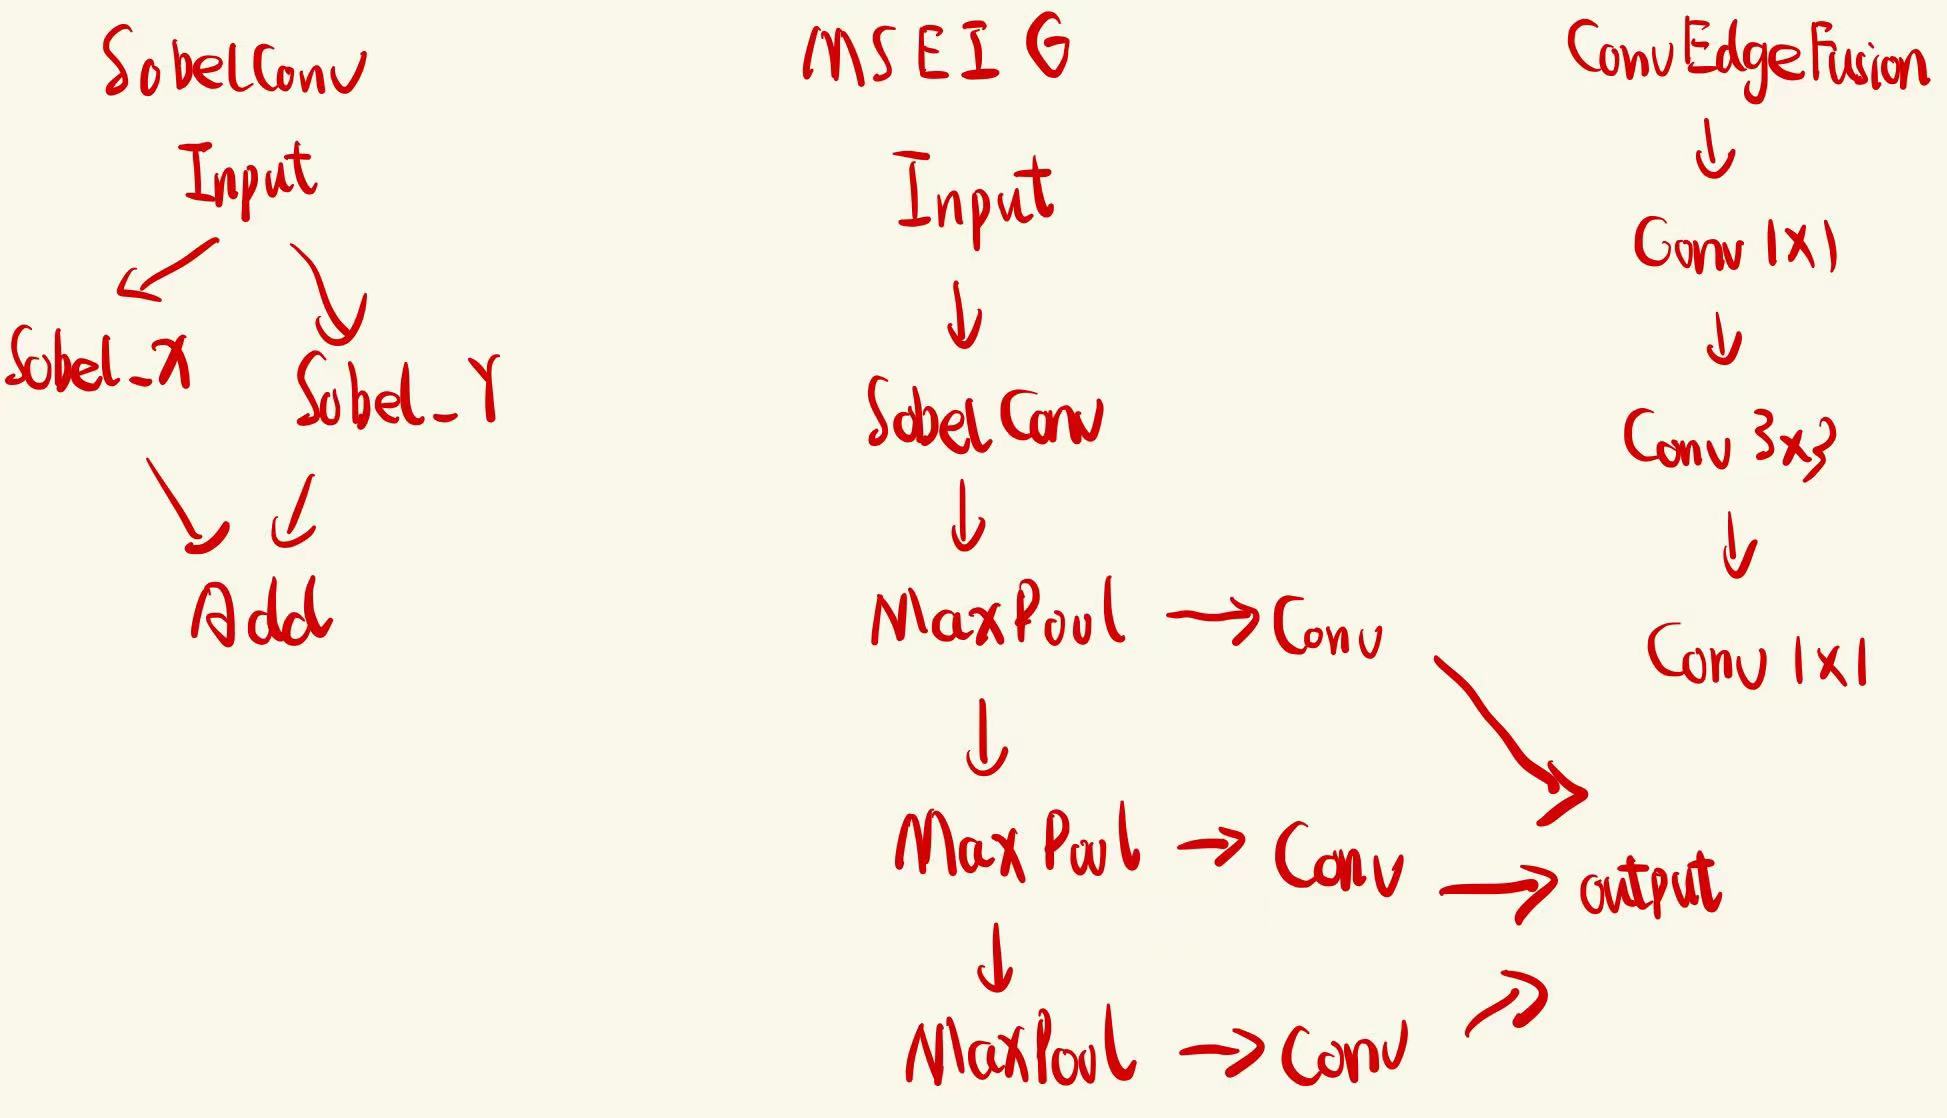 SobelConv
Input
Sobel_X
Sobel_Y
Add
MSEIG
Input
SobelConv
MaxPool → Conv
MaxPool → Conv → output
MaxPool → Conv
ConvEdgeFusion
Conv 1x1
Conv 3x3
Conv 1x1